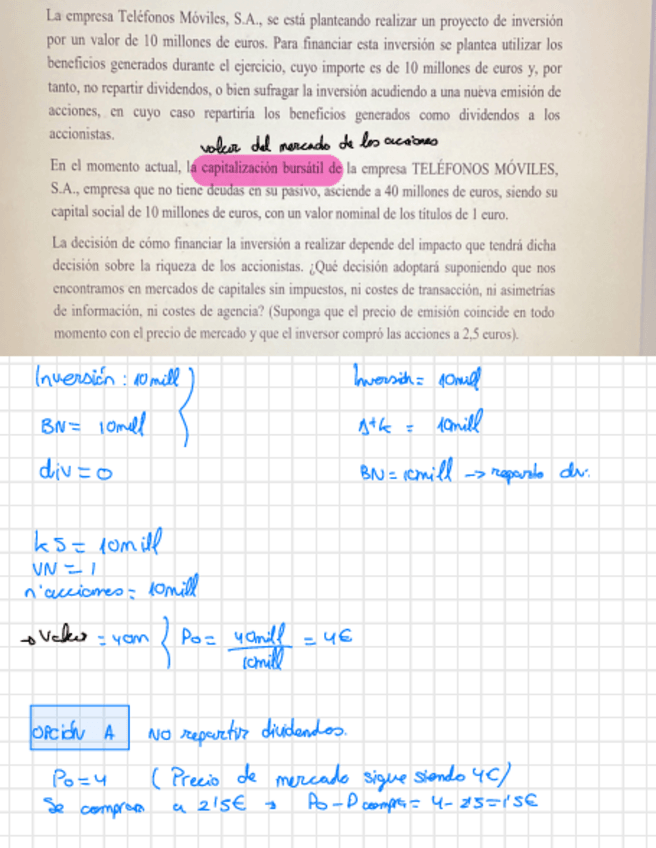 La empresa Teléfonos Móviles, S.A., se está planteando realizar un proyecto de inversión
por un valor de 10 millones de euros. Para financiar esta inversión se plantea utilizar los
beneficios generados durante el ejercicio, cuyo importe es de 10 millones de euros y, por
tanto, no repartir dividendos, o bien sufragar la inversión acudiendo a una nueva emisión de
acciones, en cuyo caso repartiría los beneficios generados como dividendos a los
accionistas.
valor del mercado de las acciones
En el momento actual, la capitalización bursátil de la empresa TELÉFONOS MÓVILES,
S.A., empresa que no tiene deudas en su pasivo, asciende a 40 millones de euros, siendo su
capital social de 10 millones de euros, con un valor nominal de los títulos de 1 euro.
La decisión de cómo financiar la inversión a realizar depende del impacto que tendrá dicha
decisión sobre la riqueza de los accionistas. ¿Qué decisión adoptará suponiendo que nos
encontramos en mercados de capitales sin impuestos, ni costes de transacción, ni asimetrías
de información, ni costes de agencia? (Suponga que el precio de emisión coincide en todo
momento con el precio de mercado y que el inversor compró las acciones a 2,5 euros).
Inversión: 10 mill
BN = 10mill
div = 0
Inversión = 10mill
Δ+k = 10mill
BN = 10mill -> reparto div.
kS = 10mill
VN = 1
nº acciones = 10mill
→ Valor = 40m } P0 = 40mill / 10mill = 4€
OPCIÓN A No repartir dividendos.
P0 = 4 (Precio de mercado sigue siendo 4€)
Se compran a 2'5€ → P0 - P compra = 4 - 2'5 = 1'5€